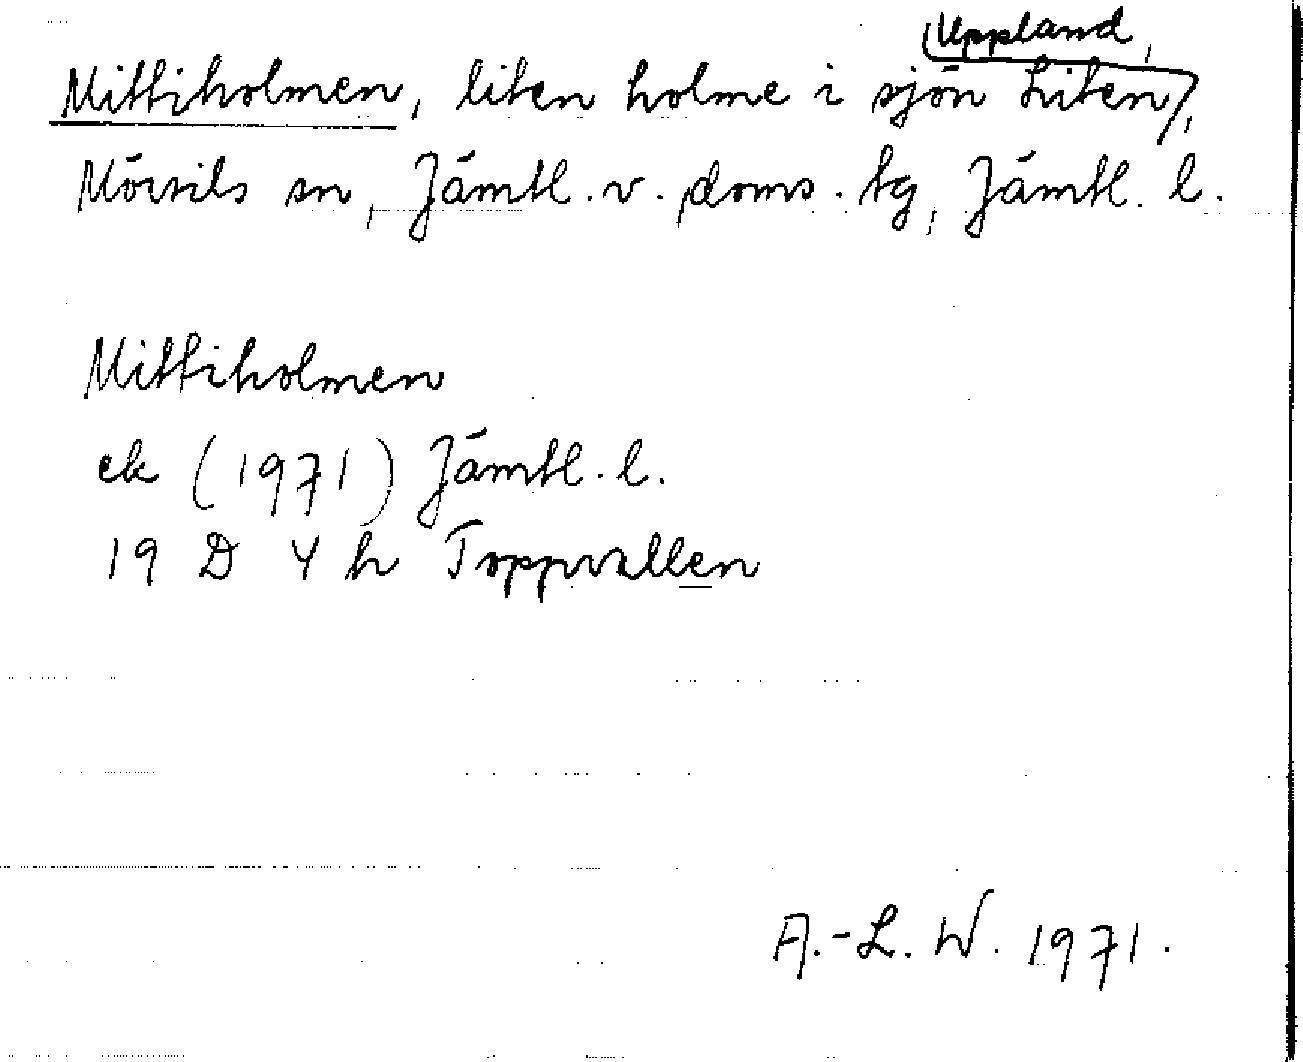 Uppland,
Mittiholmen, liten holme i sjön Liten,
Mörsils sn, Jämtl. v. doms. tg, Jämtl. l.
Mittiholmen
ek (1971) Jämtl. l.
19 D 4 h Toppvallen
A.-L. W. 1971.